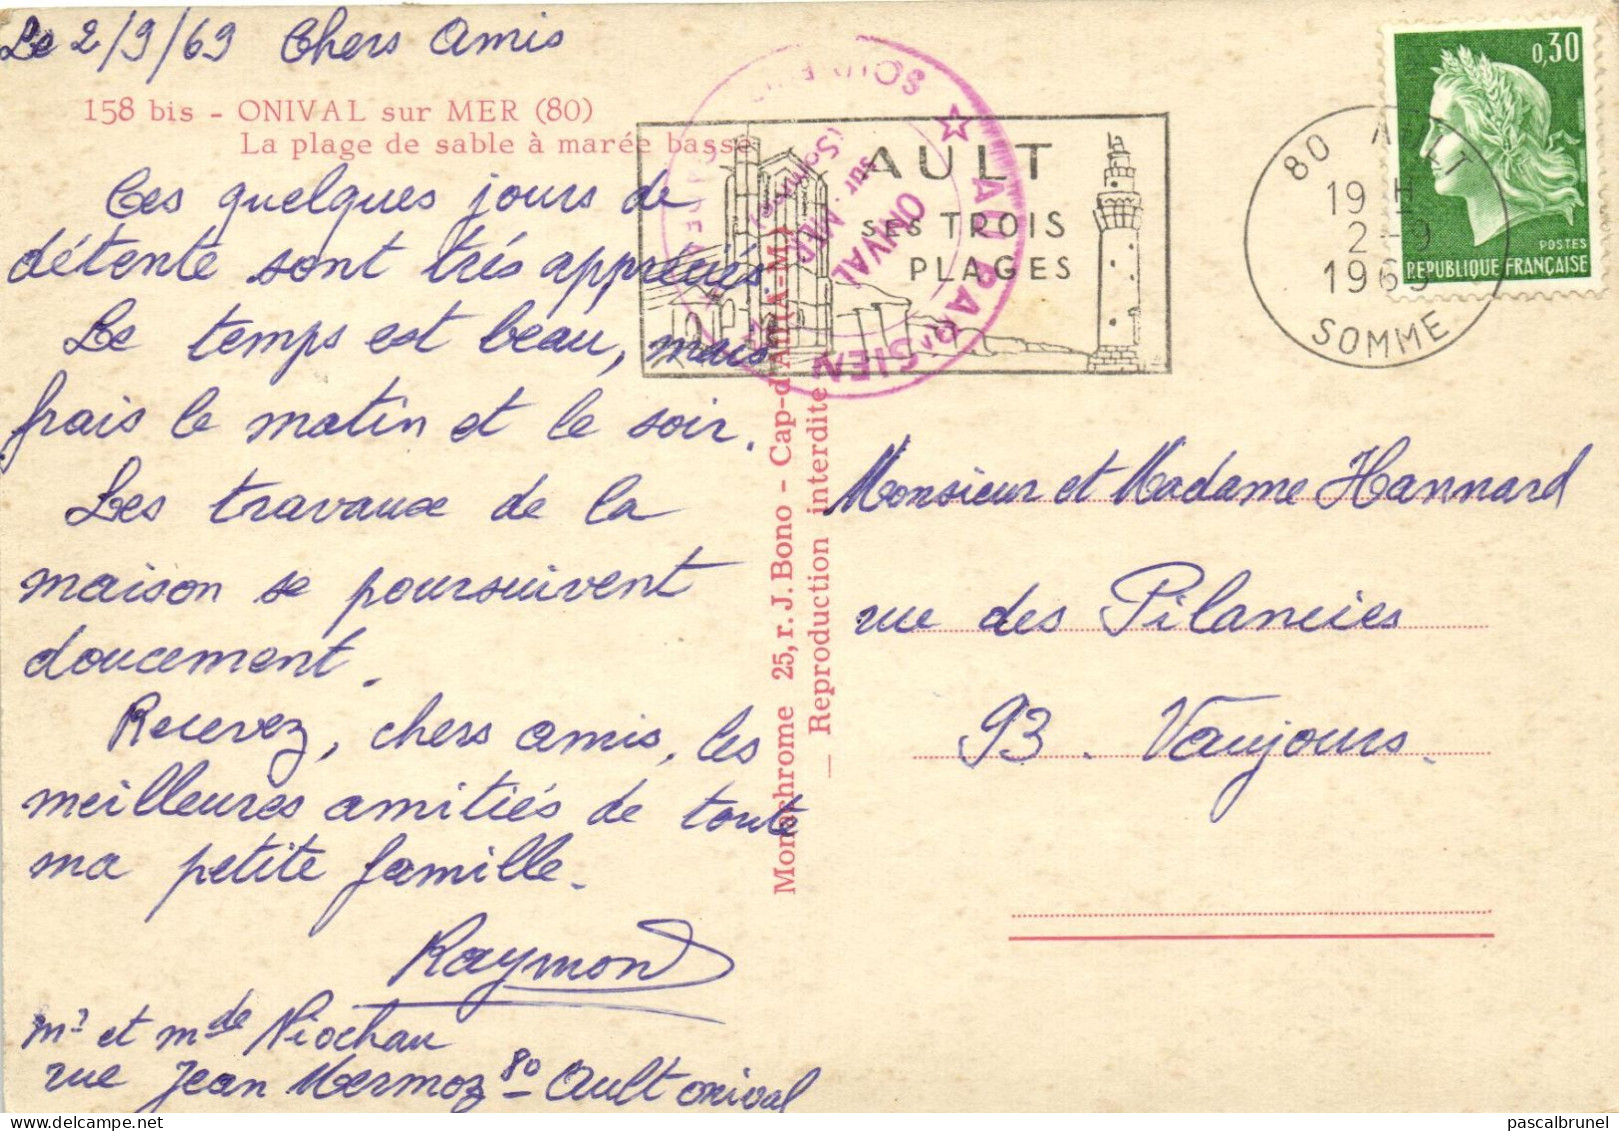 Le 2/9/69 Chers Amis
158 bis - ONIVAL sur MER (80)
La plage de sable à marée basse
Ces quelques jours de
détente sont très appréciés
Le temps est beau, mais
frais le matin et le soir.
Les travaux de la
maison se poursuivent
doucement.
Recevez, chers amis, les
meilleures amitiés de toute
ma petite famille.
Raymond
mr et mde Niochau
rue Jean Mermoz 80 - Ault onival
Monochrome 25, r. J. Bono - Cap-d'Ail (A-M.)
— Reproduction interdite
AU PARISIEN
SOUVENIRS
ONIVAL
sur MER
(Somme)
AULT
SES TROIS
PLAGES
80 AULT
19 H
2-9
1969
SOMME
0,30
POSTES
REPUBLIQUE FRANÇAISE
Monsieur et Madame Hannard
rue des
93. Vaujours.
pascalbrunel